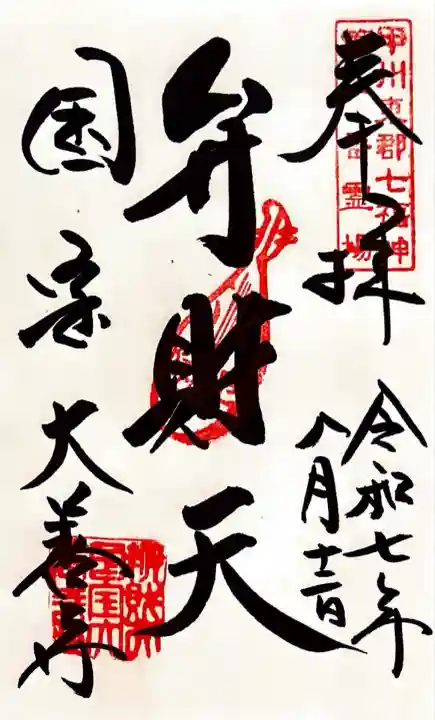 奉拝
甲州東郡七福神
弁財天霊場
令和七年
八月十二日
弁財天
国宝
大善寺